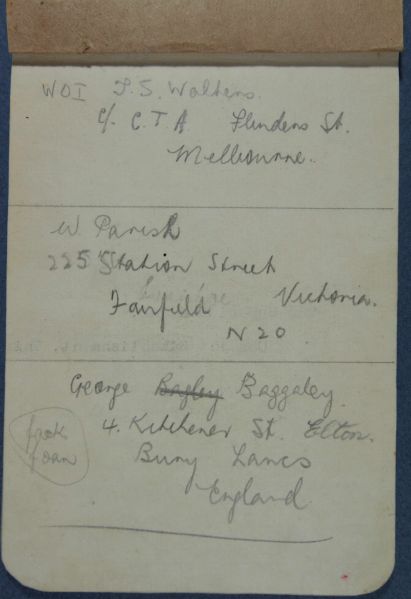 WOI T.S. Walters.
c/- C.T.A Flinders St.
Melbourne.
W Parish
225 Station Street
Fairfield Victoria.
N 20
George Bagley Baggaley
4. Kitchener St. Elton.
Bury Lancs
England